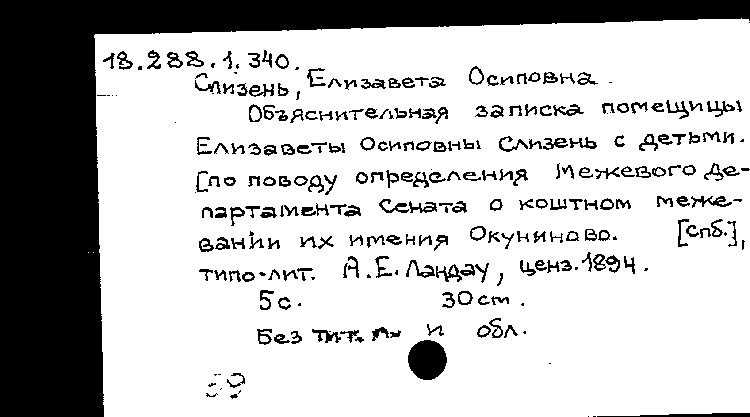 18.288.1.340.
Слизень, Елизавета Осиповна.
Объяснительная записка помещицы
Елизаветы Осиповны Слизень с детьми.
[по поводу определения Межевого де-
партамента Сената о коштном меже-
вании их имения Окуниново. [Спб.],
типо-лит. А.Е. Ландау, ценз. 1894.
5 с. 30 см.
Без тит. л. и обл.
59